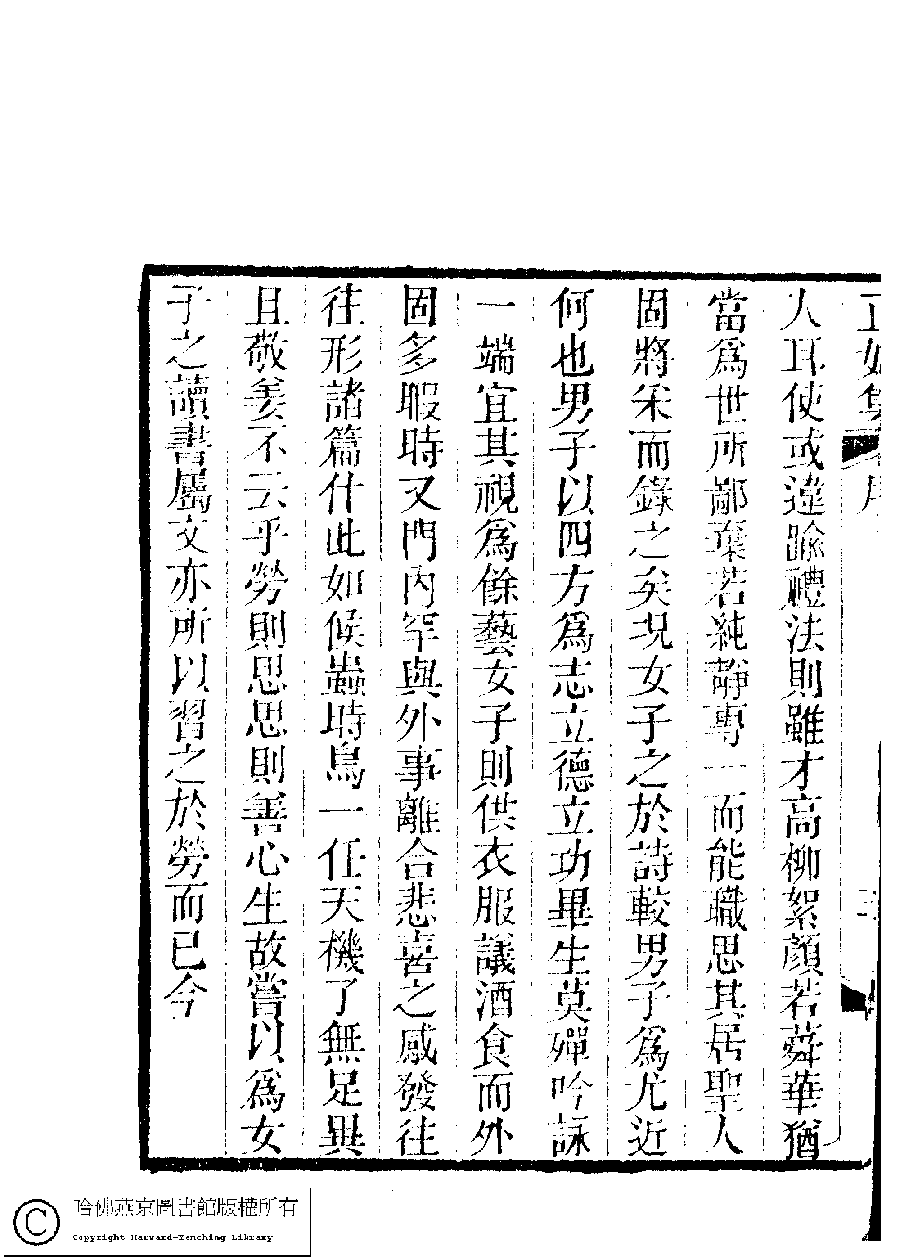 正始集 序
人耳使或違踰禮法則雖才高柳絮顏若蕣華猶
當為世所鄙棄若純靜專一而能職思其居聖人
固將采而錄之矣況女子之於詩較男子為尤近
何也男子以四方為志立德立功畢生莫殫吟詠
一端宜其視為餘藝女子則供衣服議酒食而外
固多暇時又門內罕與外事離合悲喜之感發往
往形諸篇什此如候蟲時鳥一任天機了無足異
且敬姜不云乎勞則思思則善心生故嘗以為女
子之讀書屬文亦所以習之於勞而已今
哈佛燕京圖書館版權所有
Copyright Harvard-Yenching Library